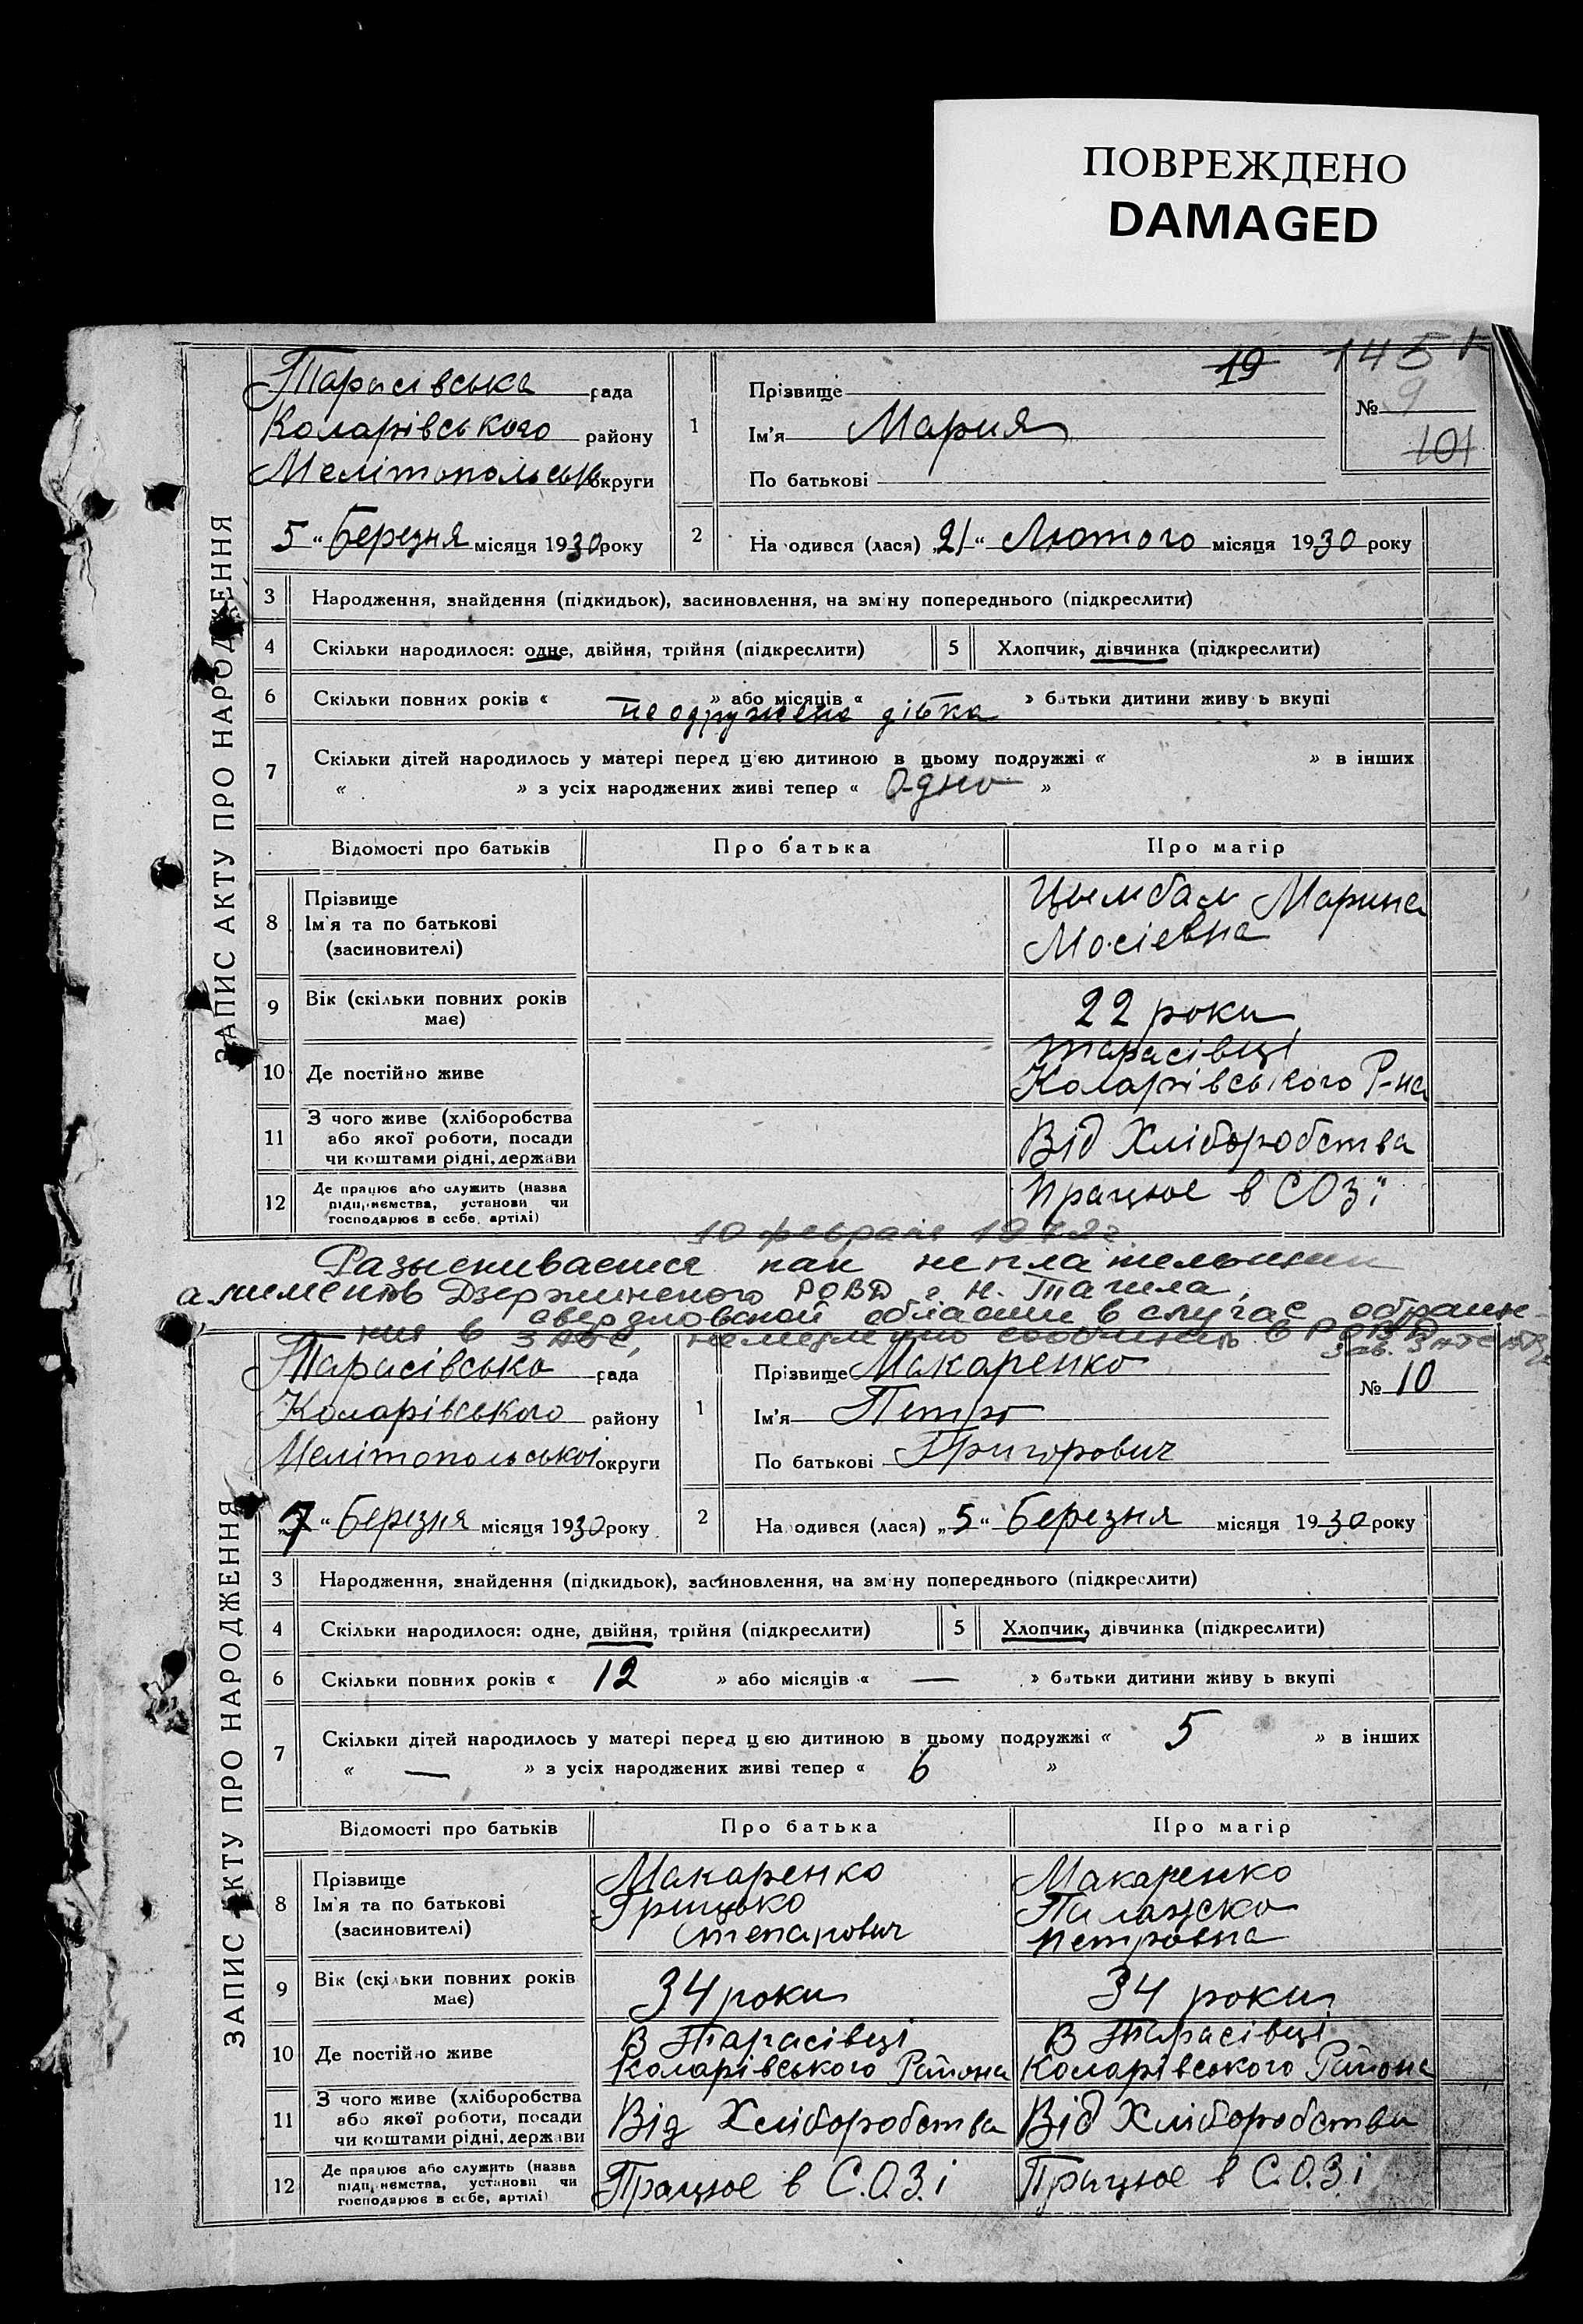 ПОВРЕЖДЕНО
DAMAGED
ЗАПИС АКТУ ПРО НАРОДЖЕННЯ
Тарасівська рада
Коларівського району
Мелітопольськ округи
5 “ Березня місяця 1930 року
1
Прізвище
Ім'я Мария
По батькові
19 1451
№ 9
101
2 На одився (лася) „21“ Лютого місяця 1930 року
3 Народження, знайдення (підкидьок), засиновлення, на зміну попереднього (підкреслити)
4 Скільки народилося: одне, двійня, трійня (підкреслити) 5 Хлопчик, дівчинка (підкреслити)
6 Скільки повних років « » або місяців « » батьки дитини живу ь вкупі
неодружена дівка
7 Скільки дітей народилось у матері перед цією дитиною в цьому подружжі « » в інших
« » з усіх народжених живі тепер « Одно »
Відомості про батьків Про батька Про матір
8 Прізвище
Ім'я та по батькові
(засиновителі)
Цымбал Марина
Мосіевна
9 Вік (скільки повних років
має)
22 роки
10 Де постійно живе
Тарасівці
Коларівського Р-на
11 З чого живе (хліборобства
або якої роботи, посади
чи коштами рідні, держави
Від Хліборобства
12 Де працює або служить (назва
підприємства, установи чи
господарює в себе, артілі)
Працює в СОЗі
10 февраля
Разыскивается как неплательщик
алиментов Дзержинского РОВД г. Н. Тагила,
свердловской области в случае обраще-
ния в ЗАГС, немедленно сообщить в РОВД
зав. ЗАГС
ЗАПИС АКТУ ПРО НАРОДЖЕННЯ
Тарасівська рада
Коларівського району
Мелітопольської округи
„7“ Березня місяця 1930 року
1
Прізвище Макаренко
Ім'я Петро
По батькові Григорович
№ 10
2 На одився (лася) „5“ Березня місяця 1930 року
3 Народження, знайдення (підкидьок), засиновлення, на зміну попереднього (підкреслити)
4 Скільки народилося: одне, двійня, трійня (підкреслити) 5 Хлопчик, дівчинка (підкреслити)
6 Скільки повних років « 12 » або місяців « — » батьки дитини живу ь вкупі
7 Скільки дітей народилось у матері перед цією дитиною в цьому подружжі « 5 » в інших
« — » з усіх народжених живі тепер « 6 »
Відомості про батьків Про батька Про матір
8 Прізвище
Ім'я та по батькові
(засиновителі)
Макаренко
Грицько
Макаренко
Палажка
Петровна
9 Вік (скільки повних років
має)
34 роки 34 роки
10 Де постійно живе
В Тарасівці
Коларівського Района
В Тарасівці
Коларівського Района
11 З чого живе (хліборобства
або якої роботи, посади
чи коштами рідні, держави
Від Хліборобства Від Хліборобства
12 Де працює або служить (назва
підприємства, установи чи
господарює в себе, артілі)
Працює в С.О.З.і Працює в С.О.З.і